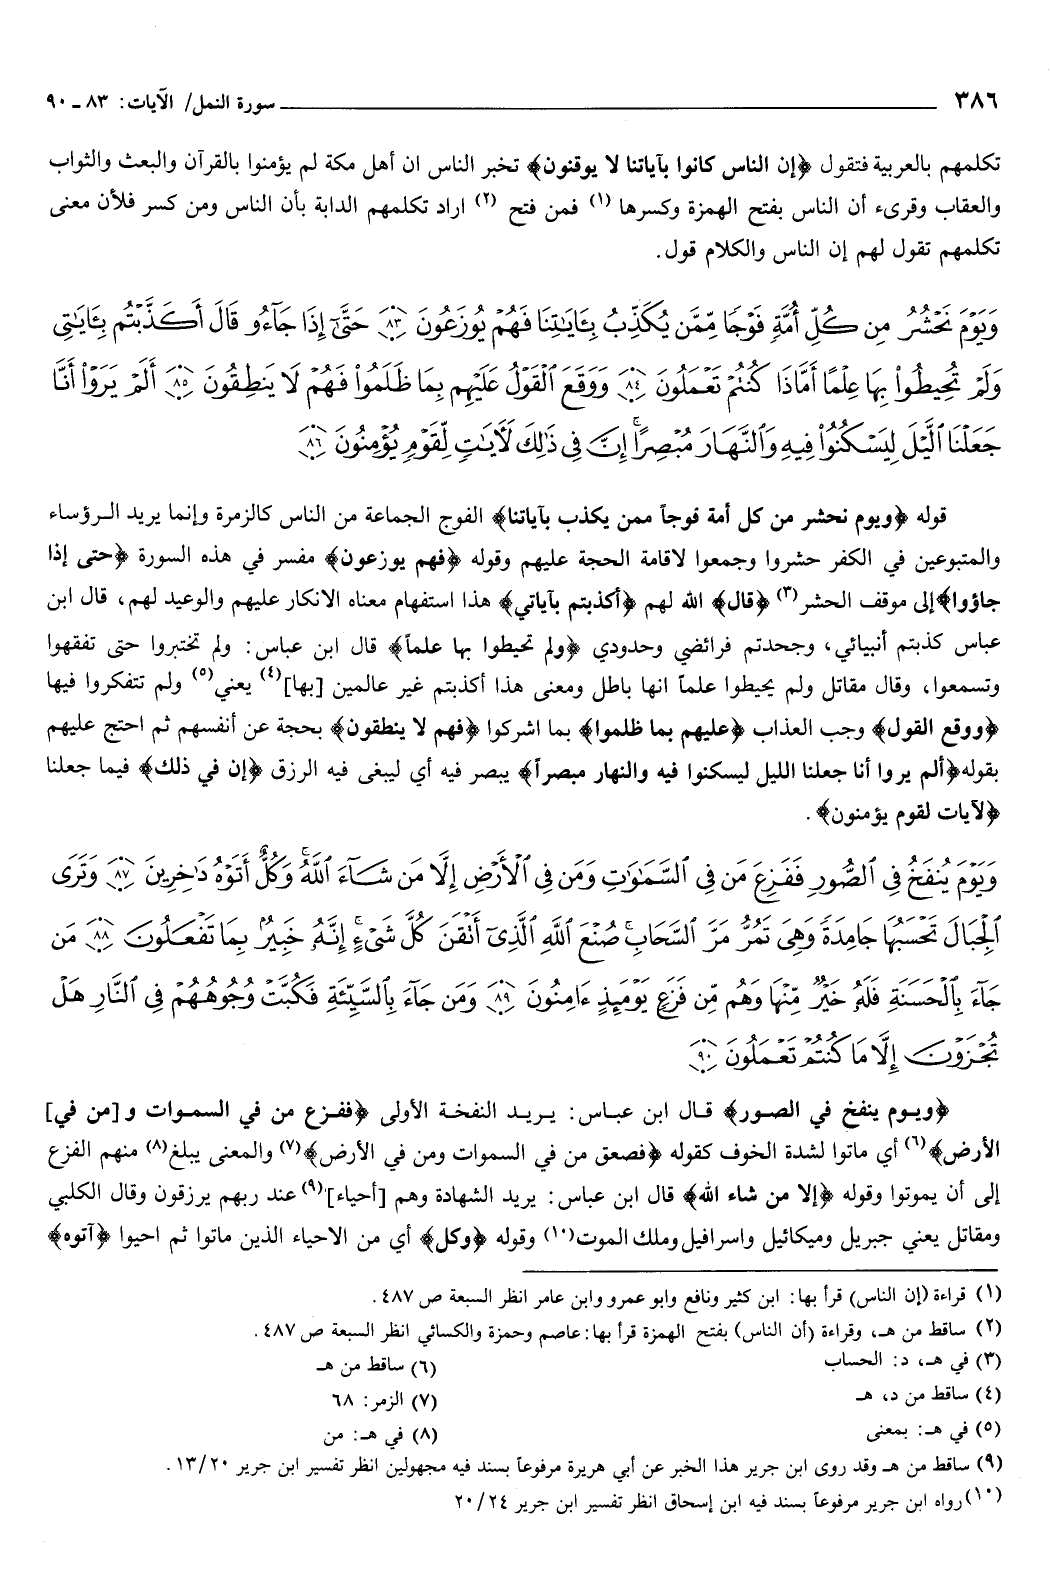 ٣٨٦ ــــــــ سورة النمل/ الآيات: ٨٣ ـ ٩٠
تكلمهم بالعربية فتقول ﴿إن الناس كانوا بآياتنا لا يوقنون﴾ تخبر الناس ان أهل مكة لم يؤمنوا بالقرآن والبعث والثواب
والعقاب وقرىء أن الناس بفتح الهمزة وكسرها (١) فمن فتح (٢) اراد تكلمهم الدابة بأن الناس ومن كسر فلأن معنى
تكلمهم تقول لهم إن الناس والكلام قول.
وَيَوْمَ نَحْشُرُ مِن كُلِّ أُمَّةٍ فَوْجًا مِّمَّن يُكَذِّبُ بِـَٔايَٰتِنَا فَهُمْ يُوزَعُونَ ٨٣ حَتَّىٰٓ إِذَا جَآءُو قَالَ أَكَذَّبْتُم بِـَٔايَٰتِى
وَلَمْ تُحِيطُوا۟ بِهَا عِلْمًا أَمَّاذَا كُنتُمْ تَعْمَلُونَ ٨٤ وَوَقَعَ ٱلْقَوْلُ عَلَيْهِم بِمَا ظَلَمُوا۟ فَهُمْ لَا يَنطِقُونَ ٨٥ أَلَمْ يَرَوْا۟ أَنَّا
جَعَلْنَا ٱلَّيْلَ لِيَسْكُنُوا۟ فِيهِ وَٱلنَّهَارَ مُبْصِرًا ۚ إِنَّ فِى ذَٰلِكَ لَـَٔايَٰتٍ لِّقَوْمٍ يُؤْمِنُونَ ٨٦
قوله ﴿ويوم نحشر من كل أمة فوجاً ممن يكذب بآياتنا﴾ الفوج الجماعة من الناس كالزمرة وإنما يريد الرؤساء
والمتبوعين في الكفر حشروا وجمعوا لاقامة الحجة عليهم وقوله ﴿فهم يوزعون﴾ مفسر في هذه السورة ﴿حتى إذا
جاؤوا﴾ إلى موقف الحشر(٣) ﴿قال﴾ الله لهم ﴿أكذبتم بآياتي﴾ هذا استفهام معناه الانكار عليهم والوعيد لهم، قال ابن
عباس كذبتم أنبيائي، وجحدتم فرائضي وحدودي ﴿ولم تحيطوا بها علماً﴾ قال ابن عباس: ولم تختبروا حتى تفقهوا
وتسمعوا، وقال مقاتل ولم يحيطوا علماً انها باطل ومعنى هذا أكذبتم غير عالمين [بها](٤) يعني(٥) ولم تتفكروا فيها
﴿ووقع القول﴾ وجب العذاب ﴿عليهم بما ظلموا﴾ بما اشركوا ﴿فهم لا ينطقون﴾ بحجة عن أنفسهم ثم احتج عليهم
بقوله ﴿ألم يروا أنا جعلنا الليل ليسكنوا فيه والنهار مبصراً﴾ يبصر فيه أي ليبغى فيه الرزق ﴿إن في ذلك﴾ فيما جعلنا
﴿لآيات لقوم يؤمنون﴾.
وَيَوْمَ يُنفَخُ فِى ٱلصُّورِ فَفَزِعَ مَن فِى ٱلسَّمَٰوَٰتِ وَمَن فِى ٱلْأَرْضِ إِلَّا مَن شَآءَ ٱللَّهُ ۚ وَكُلٌّ أَتَوْهُ دَٰخِرِينَ ٨٧ وَتَرَى
ٱلْجِبَالَ تَحْسَبُهَا جَامِدَةً وَهِىَ تَمُرُّ مَرَّ ٱلسَّحَابِ ۚ صُنْعَ ٱللَّهِ ٱلَّذِىٓ أَتْقَنَ كُلَّ شَىْءٍ ۚ إِنَّهُۥ خَبِيرٌۢ بِمَا تَفْعَلُونَ ٨٨ مَن
جَآءَ بِٱلْحَسَنَةِ فَلَهُۥ خَيْرٌ مِّنْهَا وَهُم مِّن فَزَعٍ يَوْمَئِذٍ ءَامِنُونَ ٨٩ وَمَن جَآءَ بِٱلسَّيِّئَةِ فَكُبَّتْ وُجُوهُهُمْ فِى ٱلنَّارِ هَلْ
تُجْزَوْنَ إِلَّا مَا كُنتُمْ تَعْمَلُونَ ٩٠
﴿ويوم ينفخ في الصور﴾ قال ابن عباس: يريد النفخة الأولى ﴿ففزع من في السموات و[من في]
الأرض﴾(٦) أي ماتوا لشدة الخوف كقوله ﴿فصعق من في السموات ومن في الأرض﴾(٧) والمعنى يبلغ(٨) منهم الفزع
إلى أن يموتوا وقوله ﴿إلا من شاء الله﴾ قال ابن عباس: يريد الشهادة وهم [أحياء](٩) عند ربهم يرزقون وقال الكلبي
ومقاتل يعني جبريل وميكائيل واسرافيل وملك الموت(١٠) وقوله ﴿وكل﴾ أي من الاحياء الذين ماتوا ثم احيوا ﴿آتوه﴾
(١) قراءة (إن الناس) قرأ بها: ابن كثير ونافع وابو عمرو وابن عامر انظر السبعة ص ٤٨٧.
(٢) ساقط من هـ، وقراءة (أن الناس) بفتح الهمزة قرأ بها: عاصم وحمزة والكسائي انظر السبعة ص ٤٨٧.
(٣) في هـ، د: الحساب
(٤) ساقط من د، هـ
(٥) في هـ: بمعنى
(٦) ساقط من هـ
(٧) الزمر: ٦٨
(٨) في هـ: من
(٩) ساقط من هـ وقد روى ابن جرير هذا الخبر عن أبي هريرة مرفوعاً بسند فيه مجهولين انظر تفسير ابن جرير ١٣/٢٠.
(١٠) رواه ابن جرير مرفوعاً بسند فيه ابن إسحاق انظر تفسير ابن جرير ٢٠/٢٤